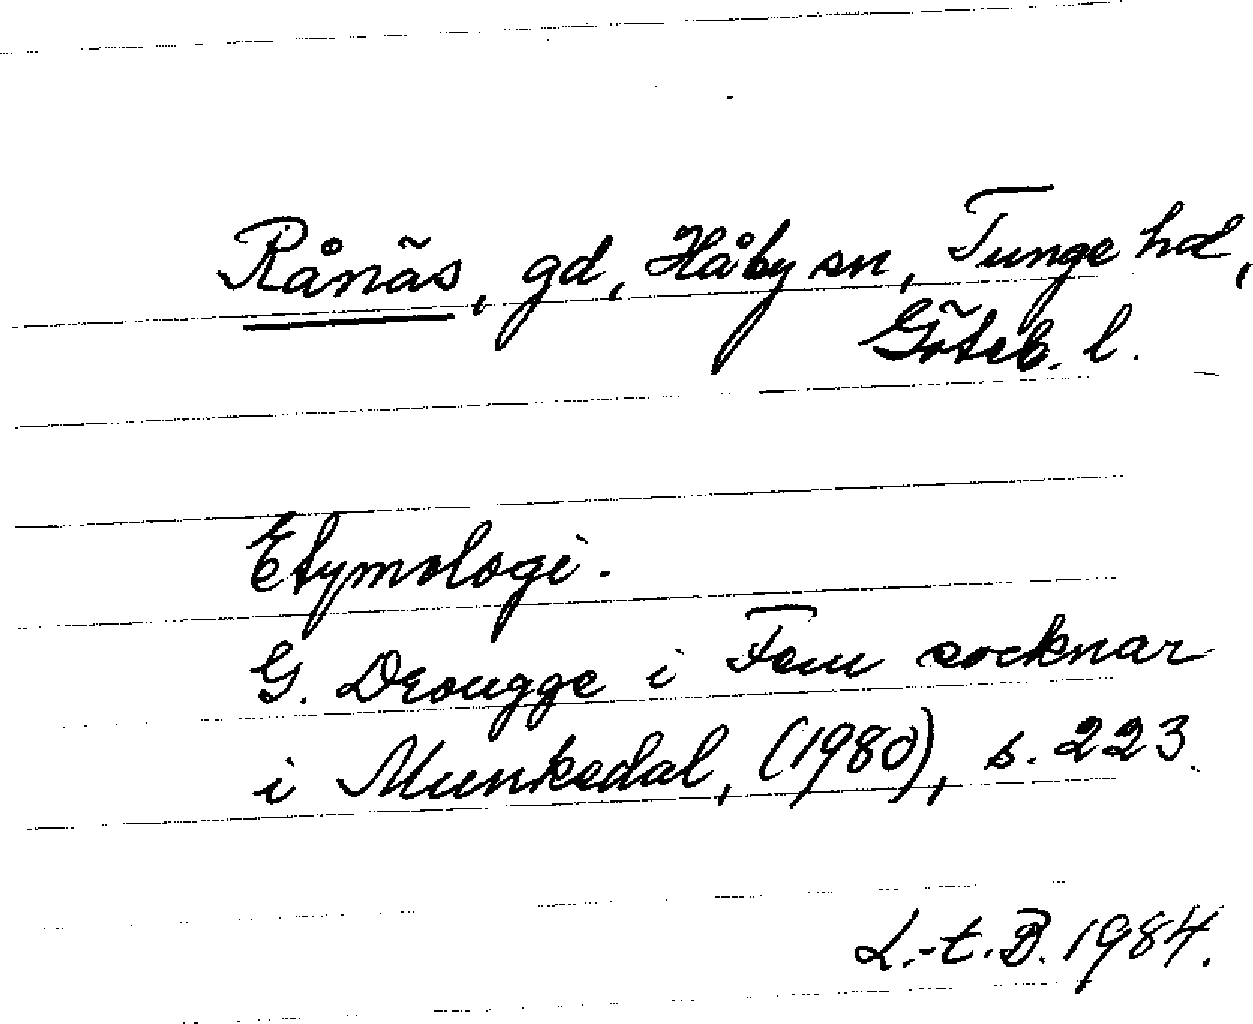 Rånäs, gd, Håby sn, Tunge hd,
Göteb. l.
Etymologi.
G. Drougge i Fem socknar
i Munkedal, (1980), s. 223.
L.-t. B. 1984.